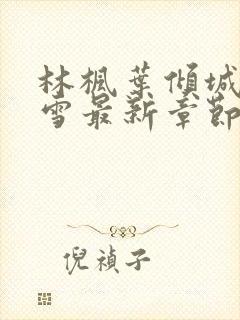 林楓葉傾城
雪最新章節
倪禎子